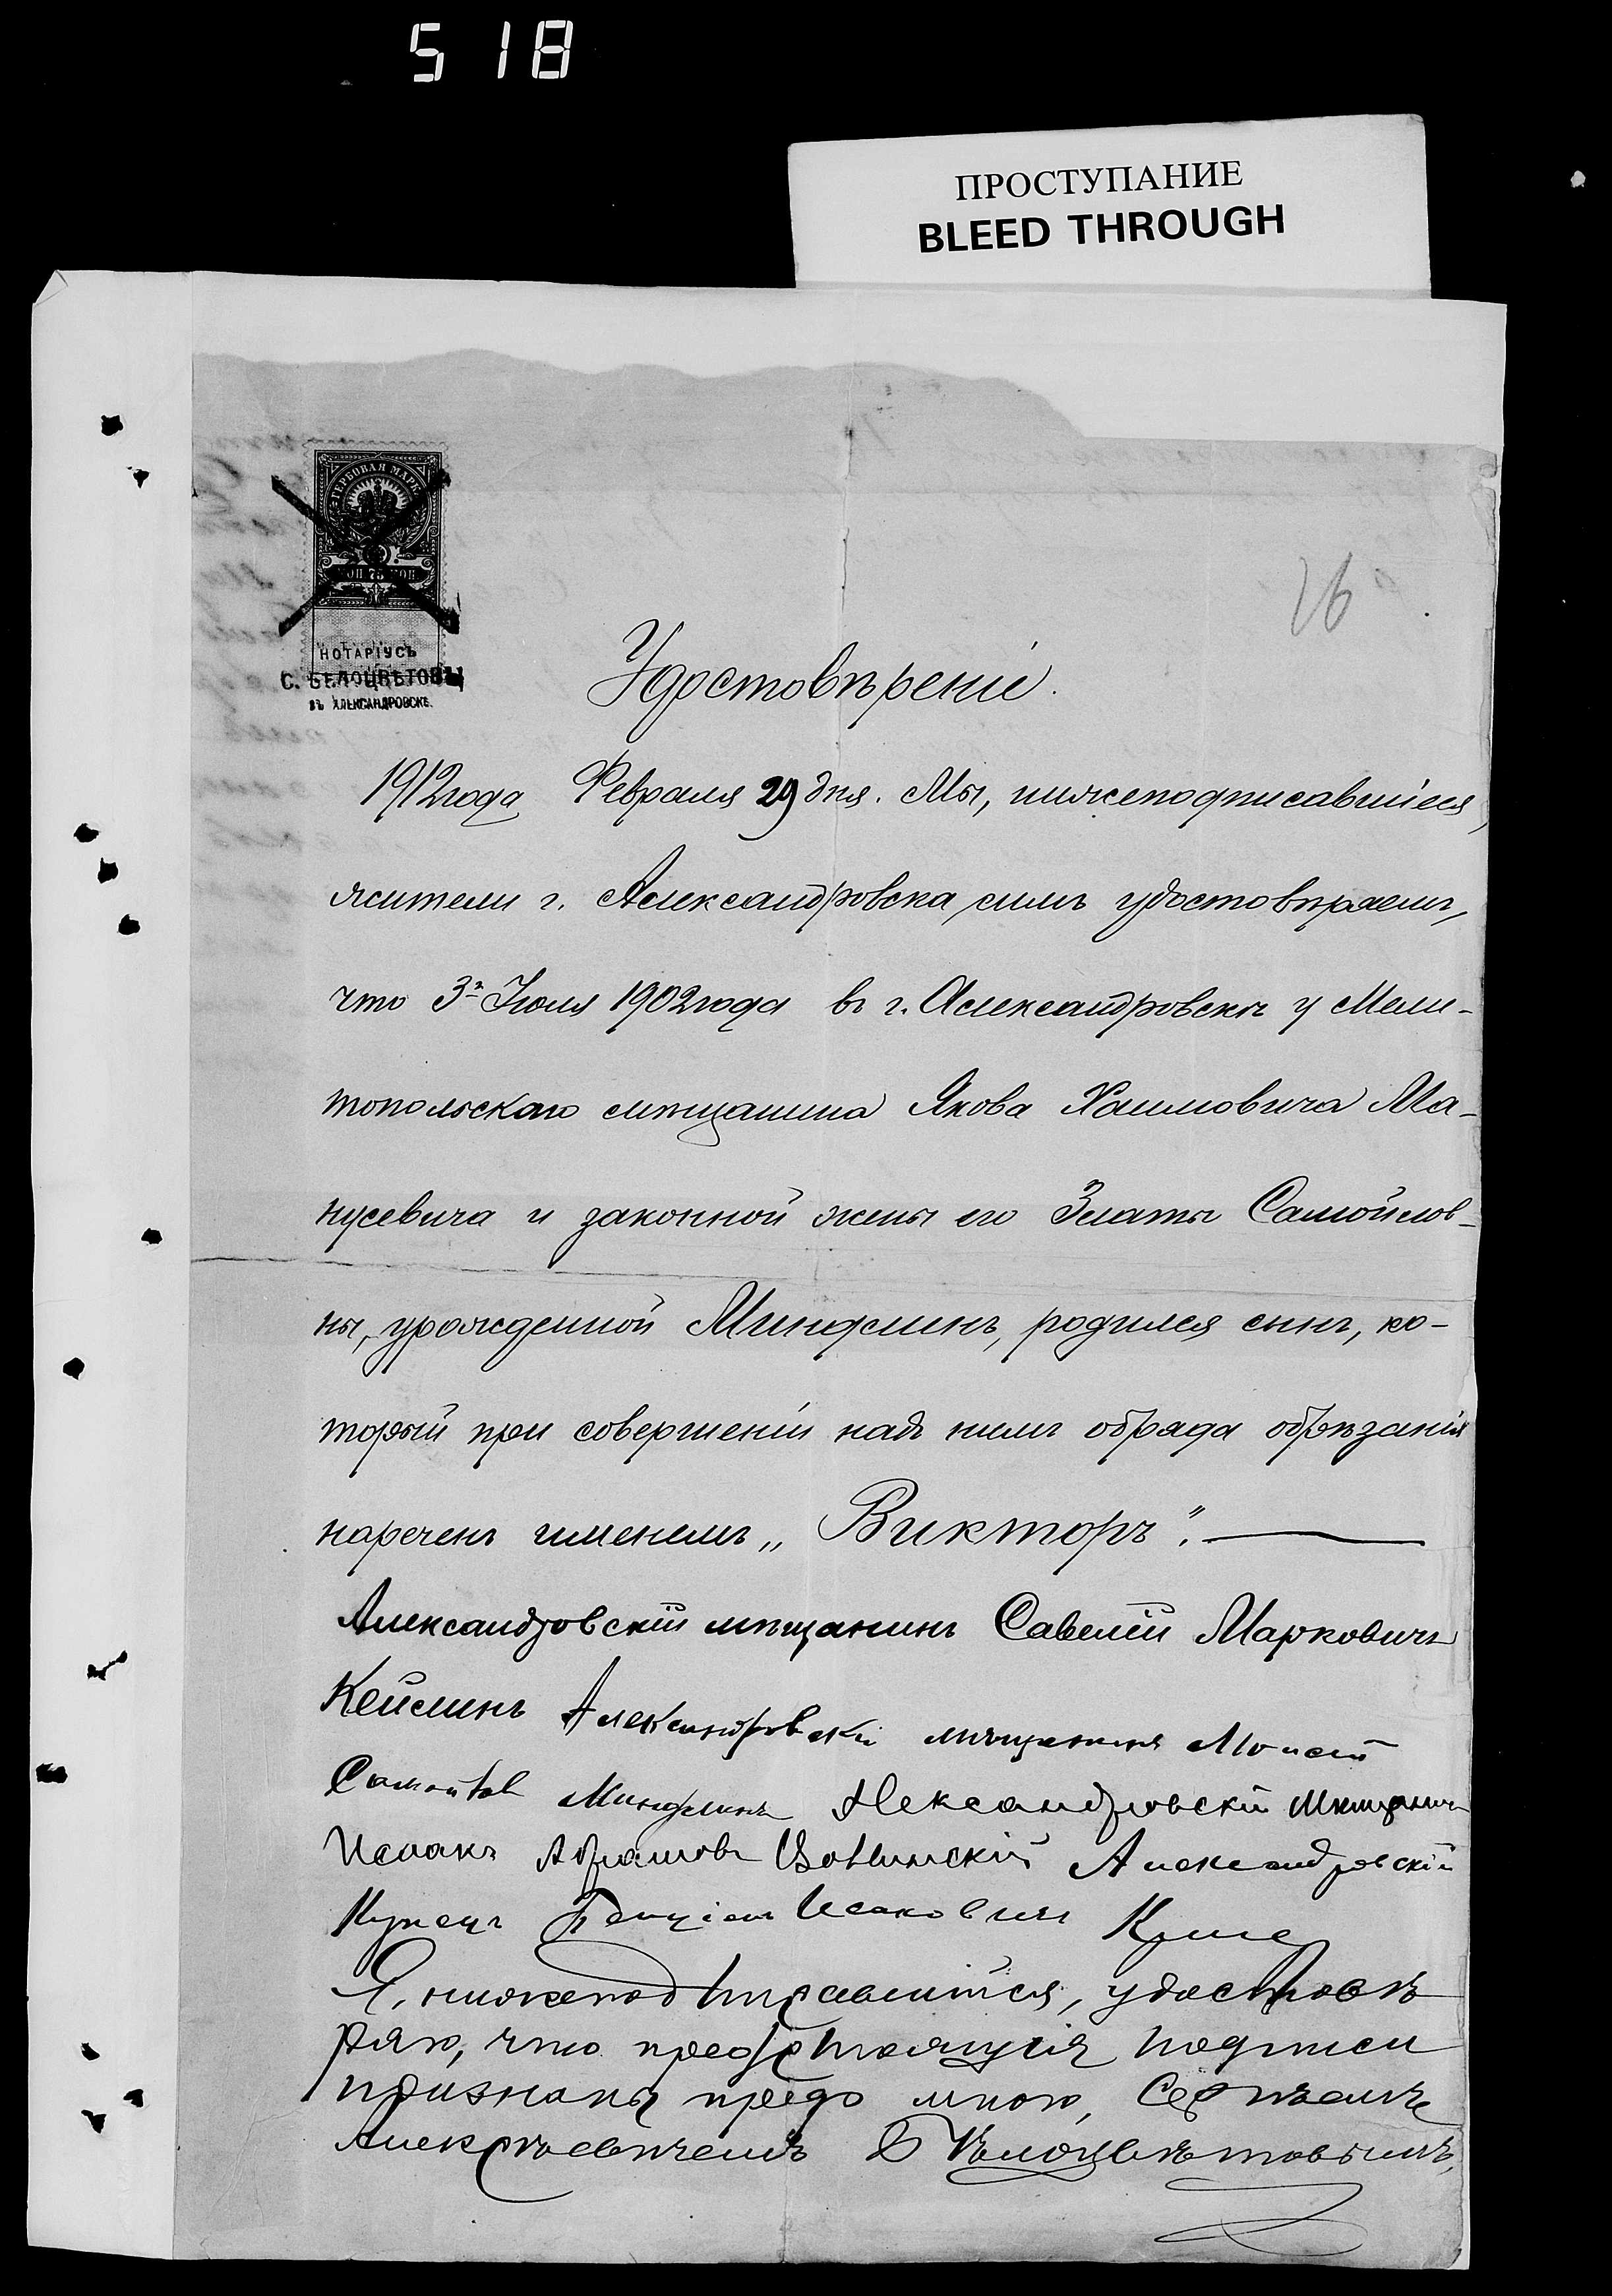 518
ПРОСТУПАНИЕ
BLEED THROUGH
ГЕРБОВАЯ МАРКА
КОП 75 КОП
НОТАРІУСЪ
С. БѢЛОЦВѢТОВЪ
ВЪ АЛЕКСАНДРОВСКѢ.
16
Удостовѣреніе.
1912 года Февраля 29 дня. Мы, нижеподписавшіеся,
жители г. Александровска симъ удостовѣряемъ,
что 3го Іюля 1902 года въ г. Александровскѣ у Мели-
топольскаго мѣщанина Якова Хаимовича Ма-
нусевича и законной жены его Златы Самойлов-
ны, урожденной Миндлинъ, родился сынъ, ко-
торый при совершеніи надъ нимъ обряда обрѣзанія
нареченъ именемъ „Викторъ“.
Александровскій мѣщанинъ Савелій Марковичъ
Кейлинъ Александровскій мѣщанинъ Моисей
Самойлов Миндлинъ Александровскій Мѣщанинъ
Исаакъ Абрамовъ Александровскій
Купецъ Исаковичъ
Я, нижеподписавшійся, удостовѣ
ряю, что предстоящія подписи
признаны предо мною, Сергѣемъ
Алексѣевичемъ Бѣлоцвѣтовымъ,